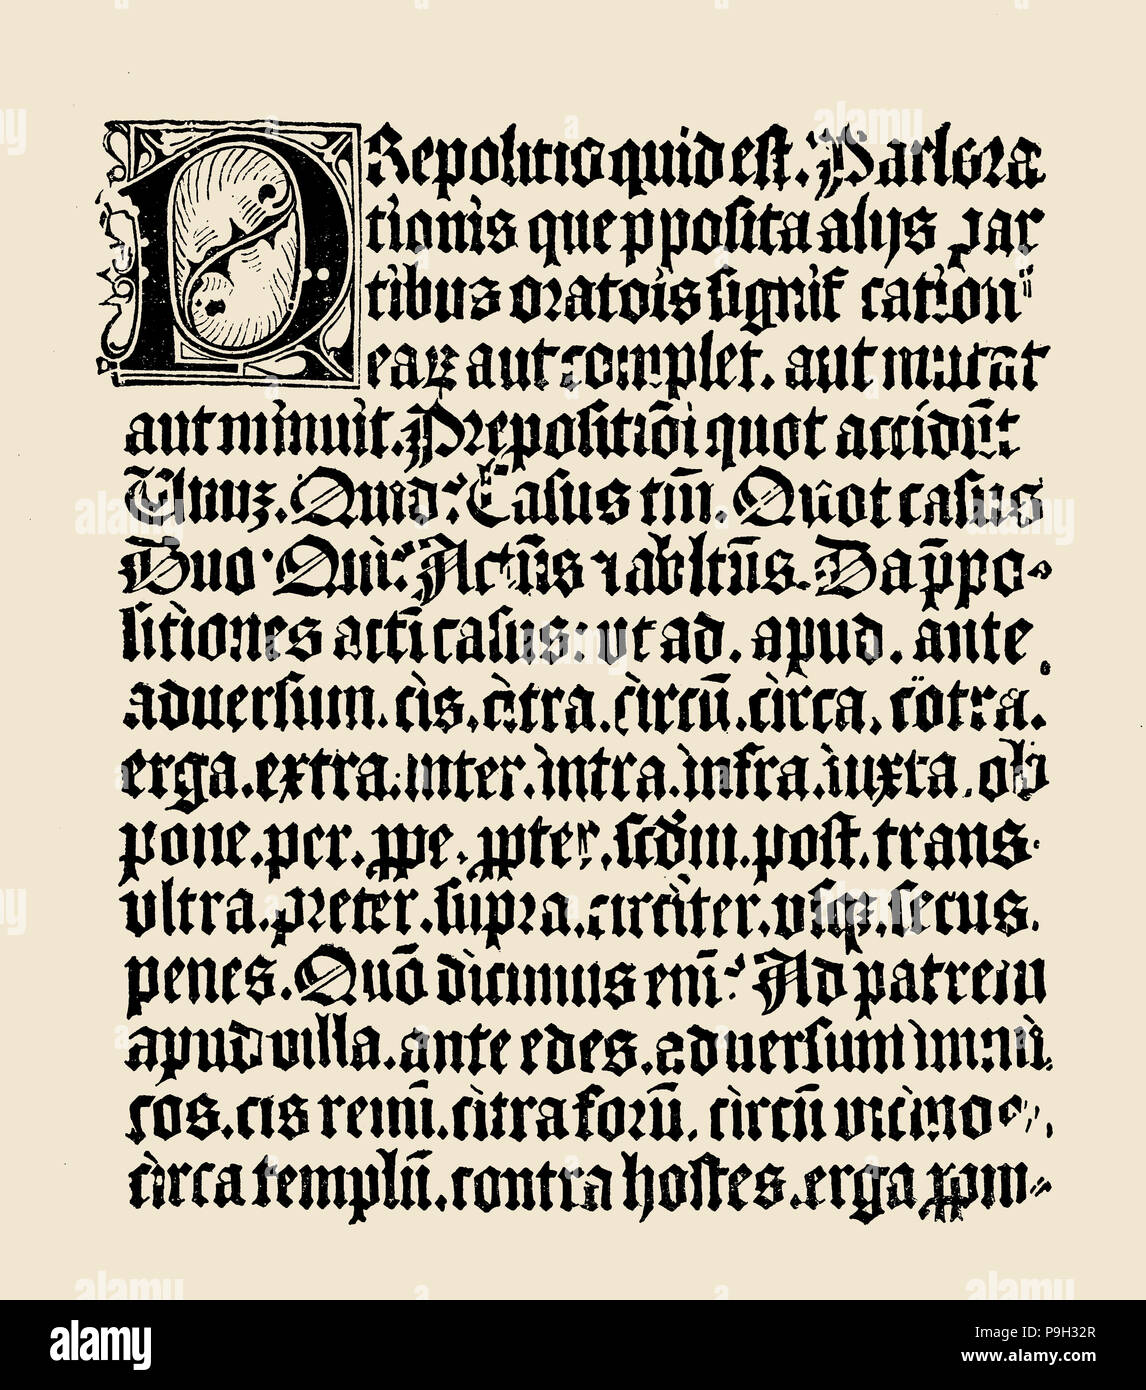 PRepositio quid est. Pars ora
tionis que p̱posita alijs par
tibus oratõis significationẽ
eaꝝ aut complet. aut mutat
aut minuit. Prepositiõi quot accidũt
Unuz. Quid? Casus tm̃. Quot casus
Duo. Qui? Actũs ⁊ abltũs. Da p̄po⸗
sitiones acti casus: vt ad. apud. ante
aduersum. cis. citra. circũ. circa. cõtra.
erga. extra. inter. intra. infra. iuxta. ob
pone. per. ꝓpe. ꝓpter. scḋm. post. trans.
vltra. preter. supra. circiter. vsqꝫ. secus.
penes. Quõ dicimus enĩ? Ad patrem
apud villã. ante edes. aduersum inimi
cos. cis renũ. citra forũ. circũ vicinos.
circa templũ. contra hostes. erga ꝓpin⸗
alamy
Image ID: P9H32R
www.alamy.com